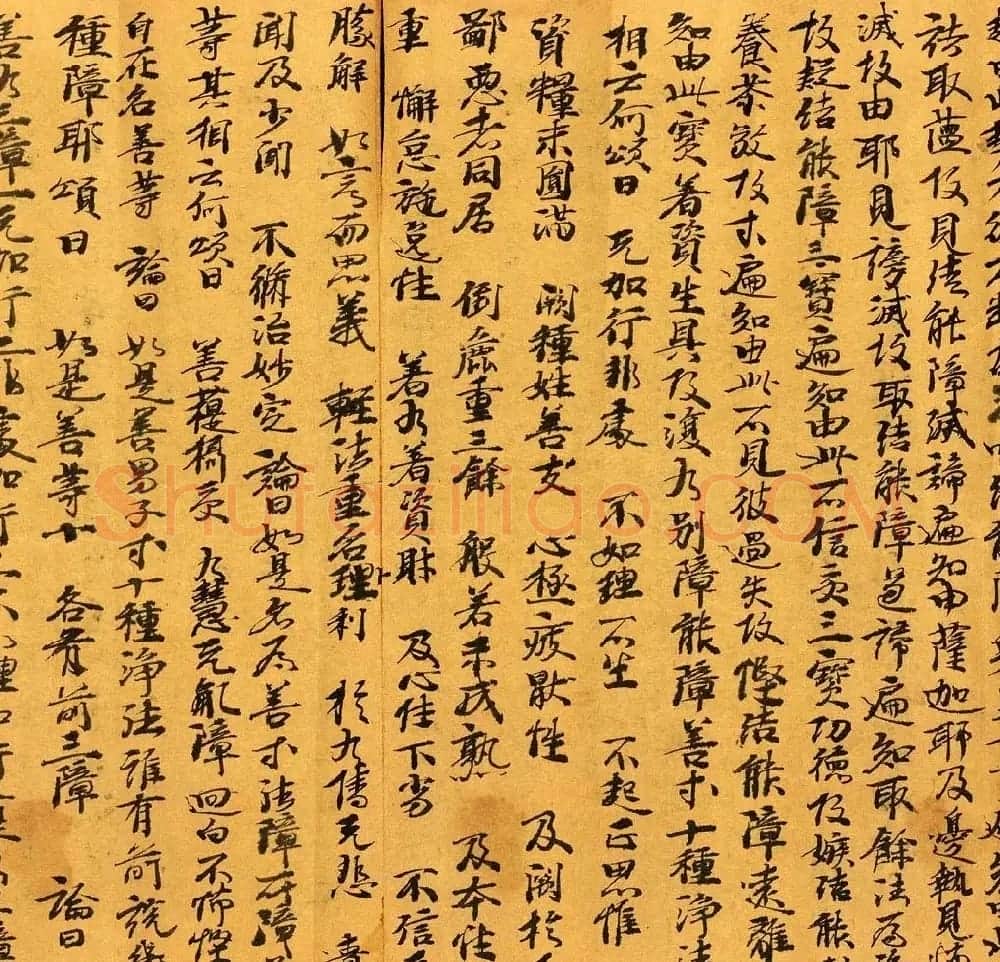 取蘊故見結能障滅諦遍知由薩迦耶及邊執見怖
滅故由耶見謗滅故取結能障道諦遍知取餘法為
故疑結能障三寶遍知由此不信受三寶功德故嫉結能
養恭敬故等遍知由此不見彼過失故慳結能障遠離
知由此寶著資生具故復有別障能障善等十種淨法
相云何頌曰 无加行非處 不如理不生 不起正思惟
資糧未圓滿 闕種姓善友 心極疲厭性 及闕於
鄙惡者同居 倒麁重三餘 般若未成熟 及本性
重 懈怠放逸性 著有著資財 及心性下劣 不信
勝解 如言而思義 輕法重名理利 於有情无悲
聞及少聞 不脩治妙定 論曰如是名為善等法障所障
等其相云何頌曰 善菩提 有慧无亂障 迴向不怖慳
自在名善等 論曰如是善男子等十種淨法誰有前說幾
種障耶頌曰 如是善等十 各有前三障 論曰
善有三障一无加行二非處加行
ShufaZiliao.COM